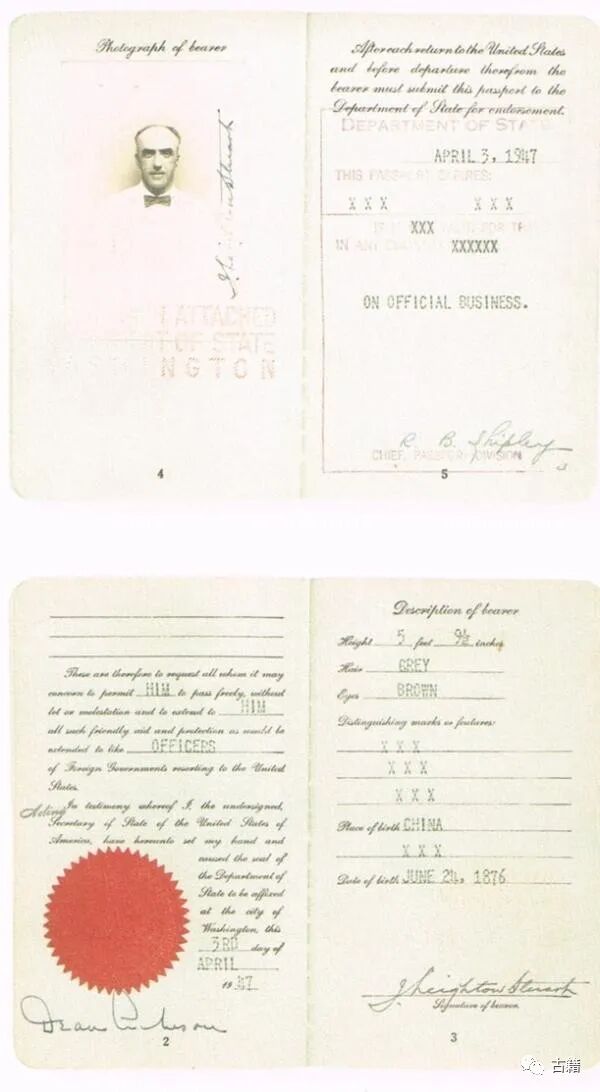 Photograph of bearer
J. Leighton Stuart
ATTACHED
DEPARTMENT OF STATE
WASHINGTON
4
After each return to the United States
and before departure therefrom the
bearer must submit this passport to the
Department of State for endorsement.
DEPARTMENT OF STATE
APRIL 3, 1947
THIS PASSPORT EXPIRES:
X X X X X X
IS XXX VALID FOR TR
IN ANY XXXXXX
ON OFFICIAL BUSINESS.
R. B. Shipley
CHIEF, PASSPORT DIVISION
5
These are therefore to request all whom it may
concern to permit HIM to pass freely, without
let or molestation and to extend to HIM
all such friendly aid and protection as would be
extended to like OFFICERS
of Foreign Governments resorting to the United
States.
Acting
In testimony whereof I, the undersigned,
Secretary of State of the United States of
America, have hereunto set my hand and
caused the seal of
the Department of
State to be affixed
at the city of
Washington, this
3RD day of
APRIL
1947
Dean Acheson
2
Description of bearer
Height 5 feet 9½ inches
Hair GREY
Eyes BROWN
Distinguishing marks or features:
X X X
X X X
X X X
Place of birth CHINA
X X X
Date of birth JUNE 24, 1876
J. Leighton Stuart
Signature of bearer.
3
古籍